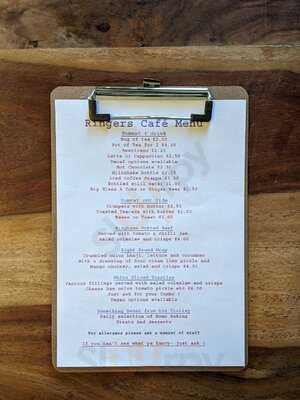 Ringers Café Menu
Summat t'drink
Mug of Tea £2.00
Pot of Tea for 2 £4.00
Americano £2.20
Latte or Cappuccino £2.50
Decaf options available
Hot Chocolate
Milkshake Bottle
Iced Coffee Frappe
Bottled still water £1.00
Big Glass A Coke or Ginger Beer
Summat ont Side
Crumpets with butter
Toasted Teacake with butter
Beans on Toast
Ringham Potted Beef
Served with tomato & chilli jam
salad coleslaw and crisps
Eight Pound Drop
Crumbled onion bhaji, lettuce and cucumber
With a dressing of sour cream lime pickle and
Mango chutney, salad and crisps
Sliced Toasties
Various fillings served with salad coleslaw and crisps
Cheese ham onion tomato pickle etc
Just ask for your Combo !
Vegan options available
Something Sweet from our Trolley
Daily selection of Home Baking
Treats and Desserts
For allergens please ask a member of staff
If you can't see what ya fancy- just ask !